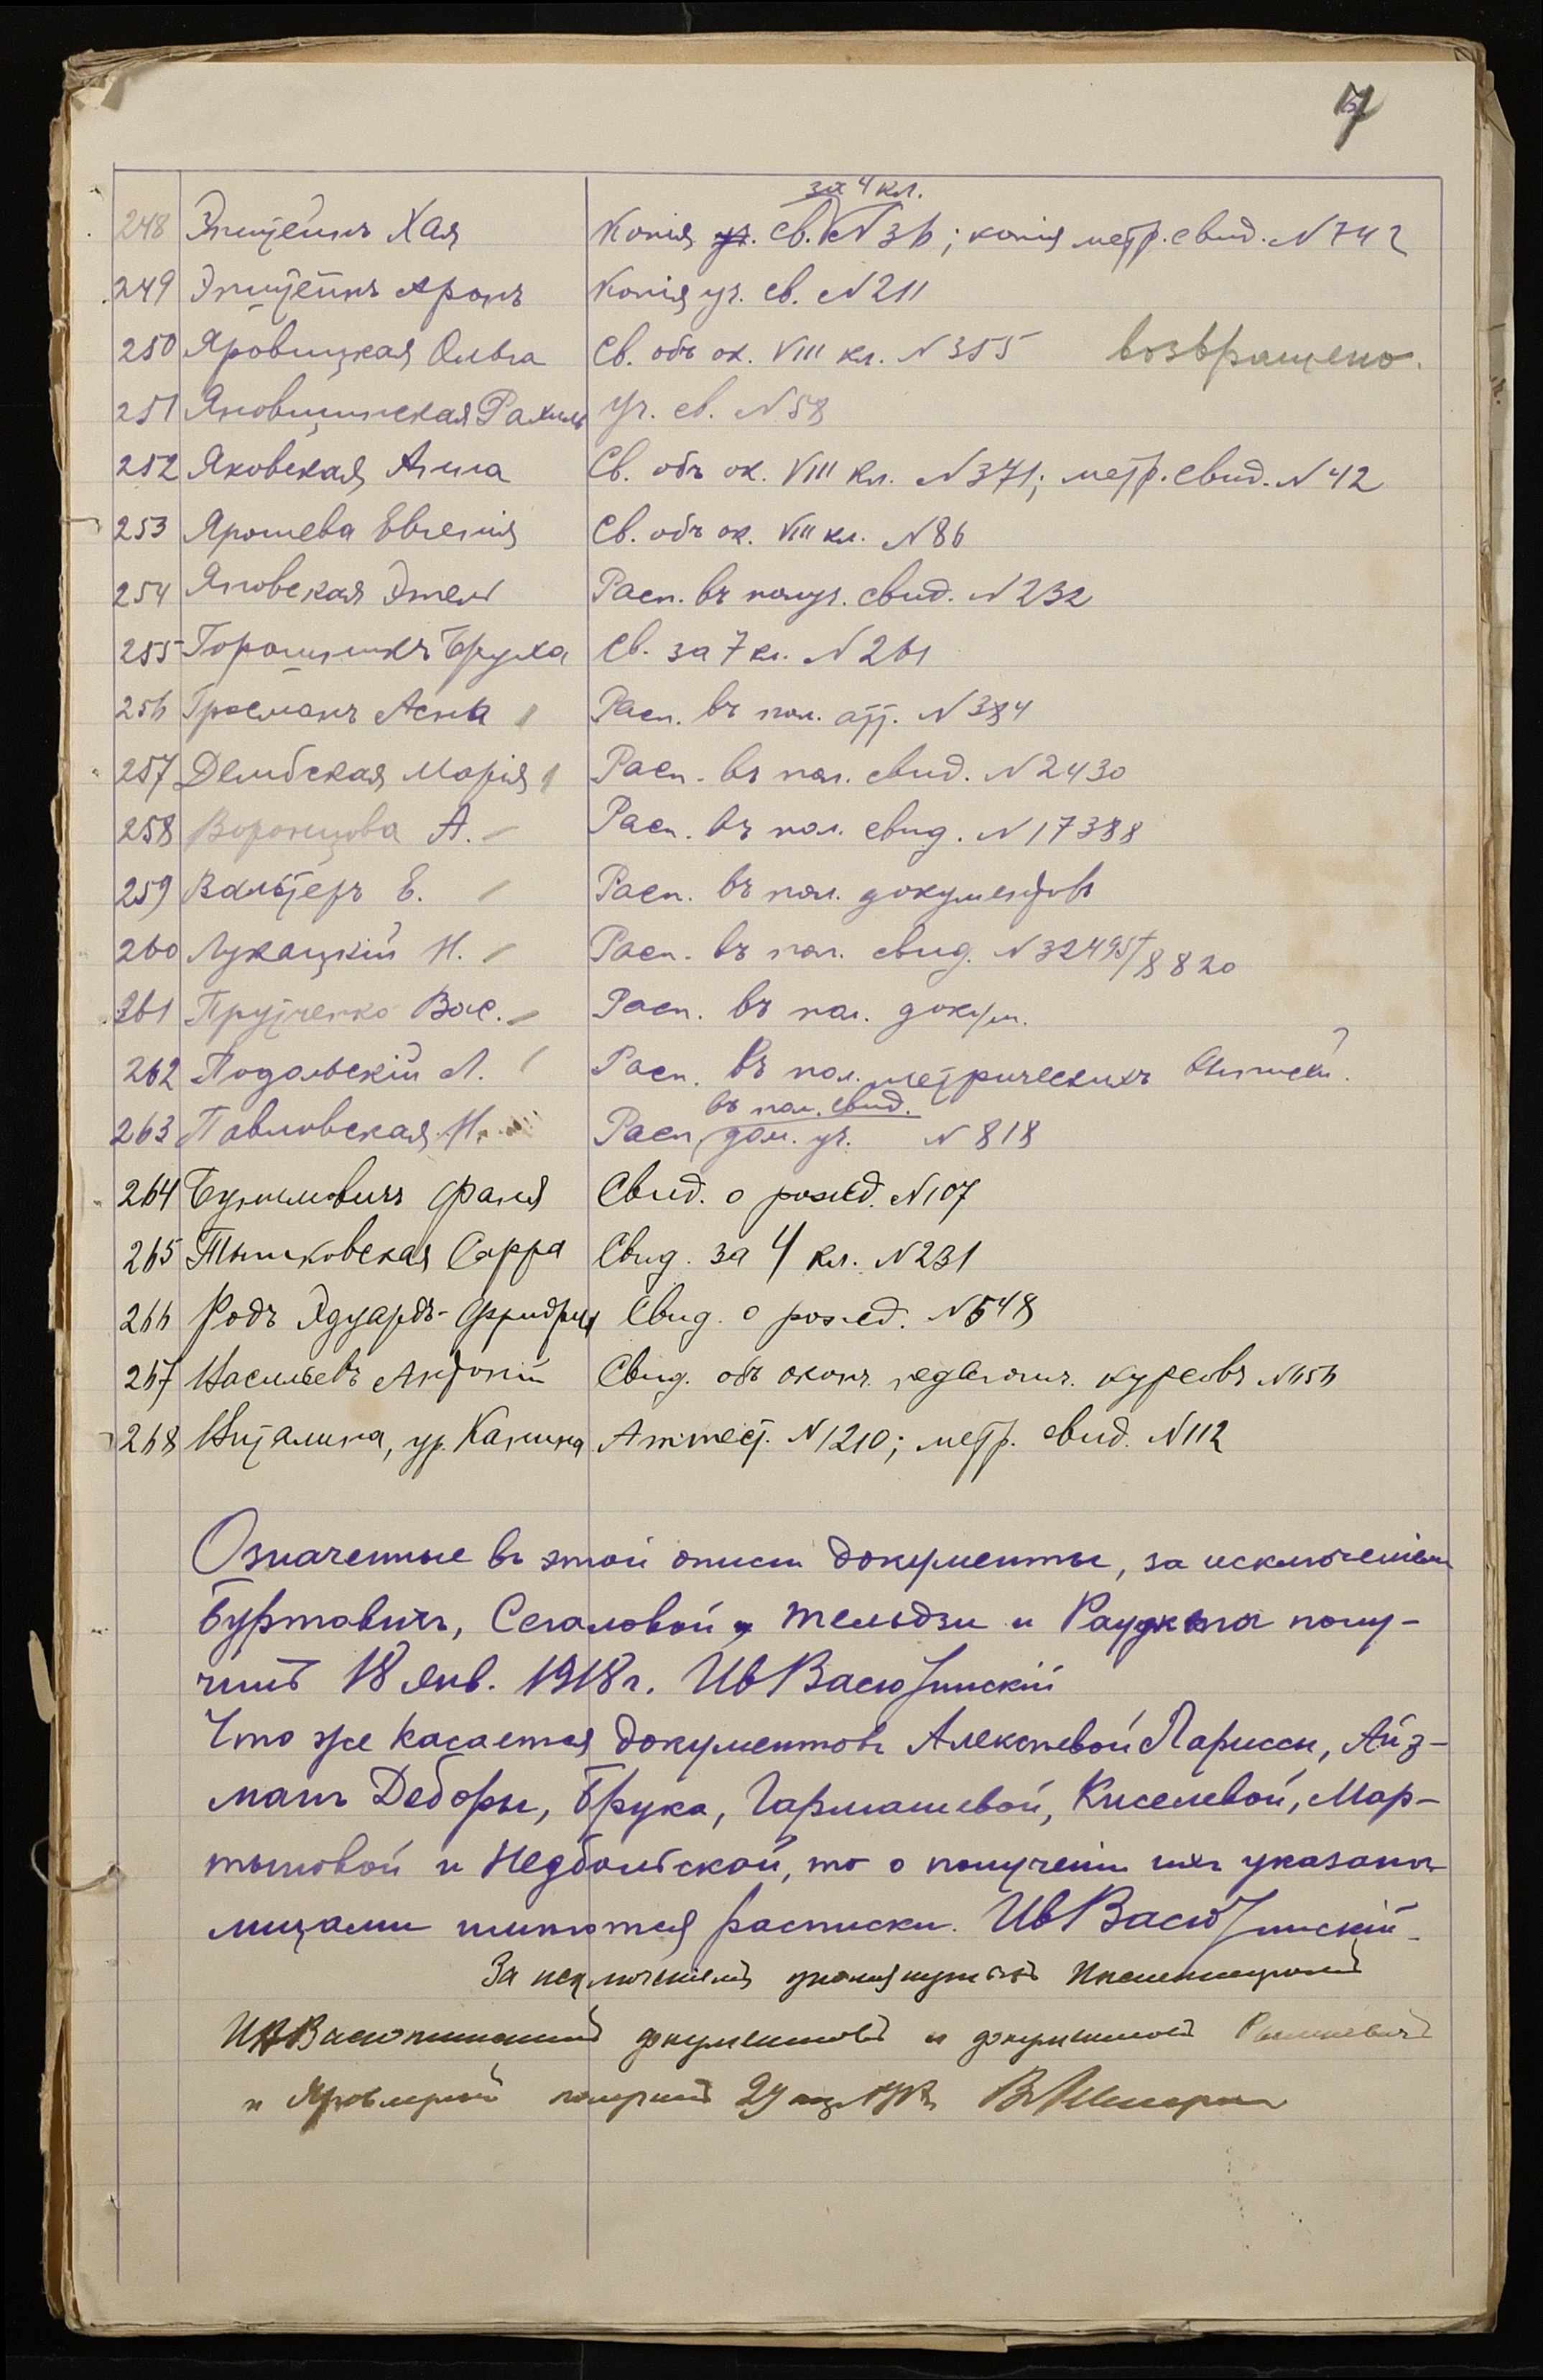 7
за 4 кл.
248 Эпштейнъ Хая Копія уч. св. N 36; копія метр. свид. N 742
249 Эпштейнъ Аронъ Копія уч. св. N 211
250 Яровицкая Ольга Св. объ ок. VIII кл. N 355 возвращено.
251 Яновщинская Рахиль Уч. св. N 58
252 Яковская Анна Св. объ ок. VIII кл. N 371; метр. свид. N 42
253 Ярошева Евгенія Св. объ ок. VIII кл. N 86
254 Яновская Этель Расп. въ получ. свид. N 232
255 Горошникъ Бруха Св. за 7 кл. N 261
256 Гросманъ Асна Расп. въ пол. атт. N 384
257 Дембская Марія Расп. въ пол. свид. N 2430
258 Воронцова А. Расп. въ пол. свид. N 17388
259 Вальтеръ Е. Расп. въ пол. документовъ
260 Лукацкій Н. Расп. въ пол. свид. N 32495/8820
261 Прутченко Вас. Расп. въ пол. докум.
262 Подольскій Л. Расп. въ пол. метрическихъ
въ пол. свид.
263 Павловская Н. Расп. дом. уч. N 818
264 Фаня Свид. о рожд. N 107
265 Тышковская Сарра Свид. за 4 кл. N 231
266 Родъ Эдуардъ-Фридрих Свид. о рожд. N 648
267 Васильевъ Антоній Свид. объ оконч. педагогич. курсовъ N 656
268 ур. Канина Аттест. N 1210; метр. свид. N 112
Означенные въ этой описи документы, за исключеніем
Буртовичъ, Сегаловой, Тельдзи и полу-
чилъ 18 янв. 1918 г. Ив Васютинскій
Что же касается документовъ Алексѣевой Лариссы, Айз-
манъ Деборы, Брука, Гармашевой, Киселевой, Мар-
тыновой и Недбальской, то о полученіи ихъ указанн
лицами имѣются расписки. Ив Васютинскій
За исключеніемъ упомянутыхъ
Ив Васютинскимъ документовъ и документовъ
и Яровицкой получилъ 29